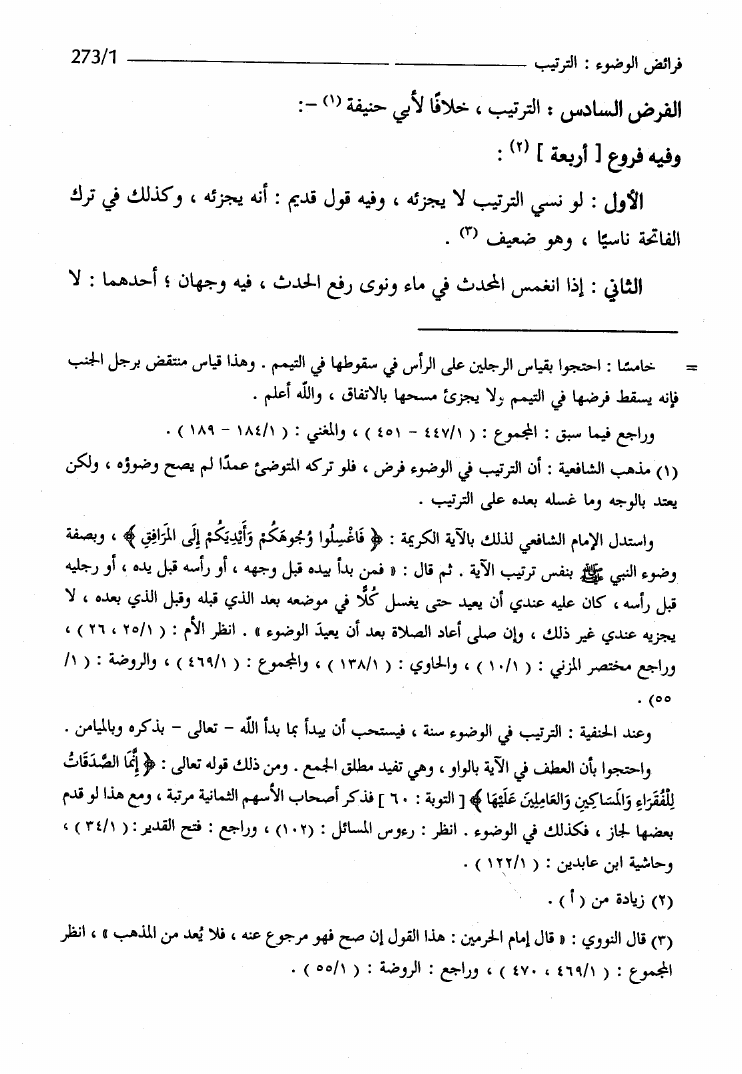 فرائض الوضوء : الترتيب 273/1
الفرض السادس : الترتيب ، خلافًا لأبي حنيفة (١) -:
وفيه فروع [ أربعة ] (٢) :
الأول : لو نسي الترتيب لا يجزئه ، وفيه قول قديم : أنه يجزئه ، وكذلك في ترك
الفاتحة ناسيًا ، وهو ضعيف (٣) .
الثاني : إذا انغمس المحدث في ماء ونوى رفع الحدث ، فيه وجهان ؛ أحدهما : لا
= خامسًا : احتجوا بقياس الرجلين على الرأس في سقوطها في التيمم . وهذا قياس منتقض برجل الجنب
فإنه يسقط فرضها في التيمم ولا يجزئ مسحها بالاتفاق ، والله أعلم .
وراجع فيما سبق : المجموع : ( ٤٤٧/١ - ٤٥١ ) ، والمغني : ( ١٨٤/١ - ١٨٩ ) .
(١) مذهب الشافعية : أن الترتيب في الوضوء فرض ، فلو تركه المتوضئ عمدًا لم يصح وضوؤه ، ولكن
يعتد بالوجه وما غسله بعده على الترتيب .
واستدل الإمام الشافعي لذلك بالآية الكريمة : ﴿ فَاغْسِلُوا وُجُوهَكُمْ وَأَيْدِيَكُمْ إِلَى المَرَافِقِ ﴾ ، وبصفة
وضوء النبي ﷺ بنفس ترتيب الآية . ثم قال : « فمن بدأ بيده قبل وجهه ، أو رأسه قبل يده ، أو رجليه
قبل رأسه ، كان عليه عندي أن يعيد حتى يغسل كُلًّا في موضعه بعد الذي قبله وقبل الذي بعده ، لا
يجزيه عندي غير ذلك ، وإن صلى أعاد الصلاة بعد أن يعيدَ الوضوء » . انظر الأم : ( ٢٥/١ ، ٢٦ ) ،
وراجع مختصر المزني : ( ١٠/١ ) ، والحاوي : ( ١٣٨/١ ) ، والمجموع : ( ٤٦٩/١ ) ، والروضة : ( ١/
٥٥) .
وعند الحنفية : الترتيب في الوضوء سنة ، فيستحب أن يبدأ بما بدأ الله - تعالى - بذكره وبالميامن .
واحتجوا بأن العطف في الآية بالواو ، وهي تفيد مطلق الجمع . ومن ذلك قوله تعالى : ﴿ إِنَّمَا الصَّدَقَاتُ
لِلْفُقَرَاءِ وَالمَسَاكِينِ وَالعَامِلِينَ عَلَيْهَا ﴾ [ التوبة : ٦٠ ] فذكر أصحاب الأسهم الثمانية مرتبة ، ومع هذا لو قدم
بعضها لجاز ، فكذلك في الوضوء . انظر : رءوس المسائل : (١٠٢) ، وراجع : فتح القدير : ( ٣٤/١ ) ،
وحاشية ابن عابدين : ( ١٢٢/١ ) .
(٢) زيادة من ( أ ) .
(٣) قال النووي : « قال إمام الحرمين : هذا القول إن صح فهو مرجوع عنه ، فلا يُعد من المذهب » ، انظر
المجموع : ( ٤٦٩/١ ، ٤٧٠ ) ، وراجع : الروضة : ( ٥٥/١ ) .